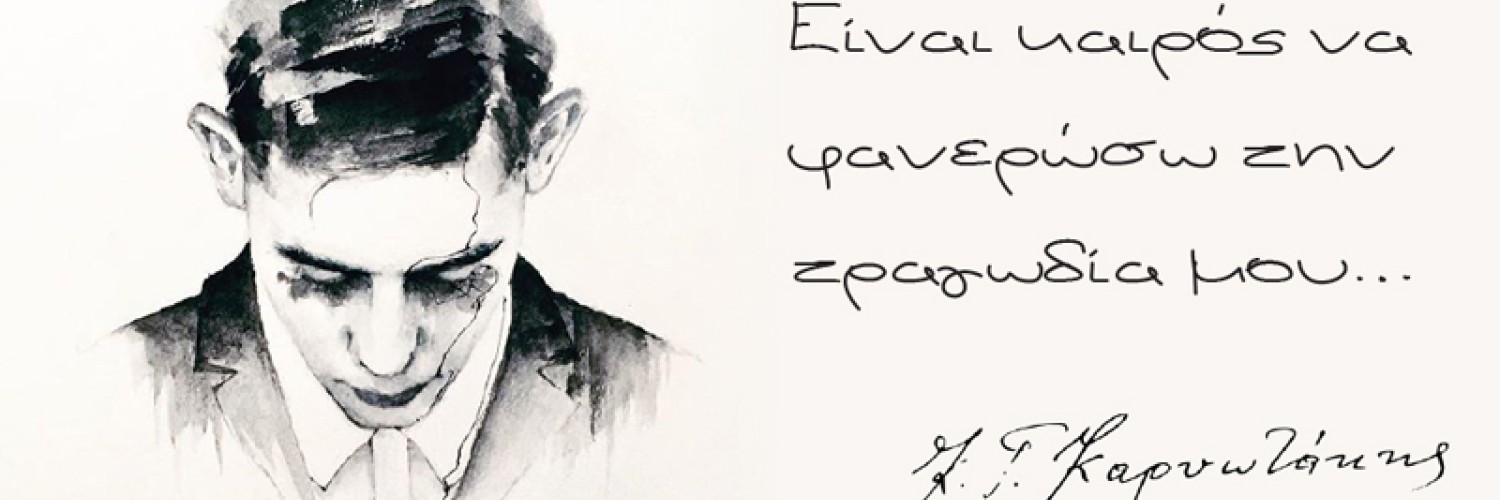 Είναι καιρός να
φανερώσω την
τραγωδία μου...
Κ. Γ. Καρυωτάκης